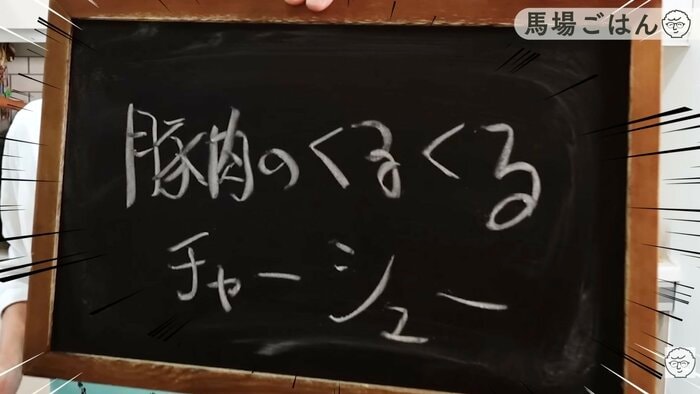 馬場ごはん
豚肉のくるくる
チャーシュー